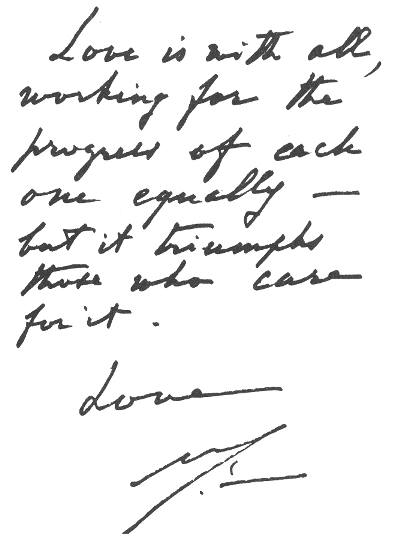 Love is with all,
working for the
progress of each
one equally —
but it triumphs
those who care
for it.
Love